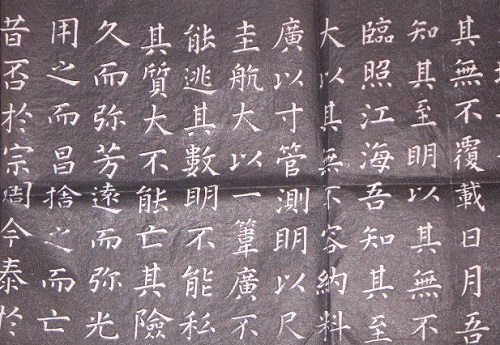 其無不覆載日月吾
知其至明以其無不
臨照江海吾知其至
大以其無不容納料
廣以寸管測明以尺
圭航大以一葦廣不
能逃其數明不能私
其質大不能亡其險
久而弥芳遠而弥光
用之而昌捨之而亡
昔否於宗周今泰於